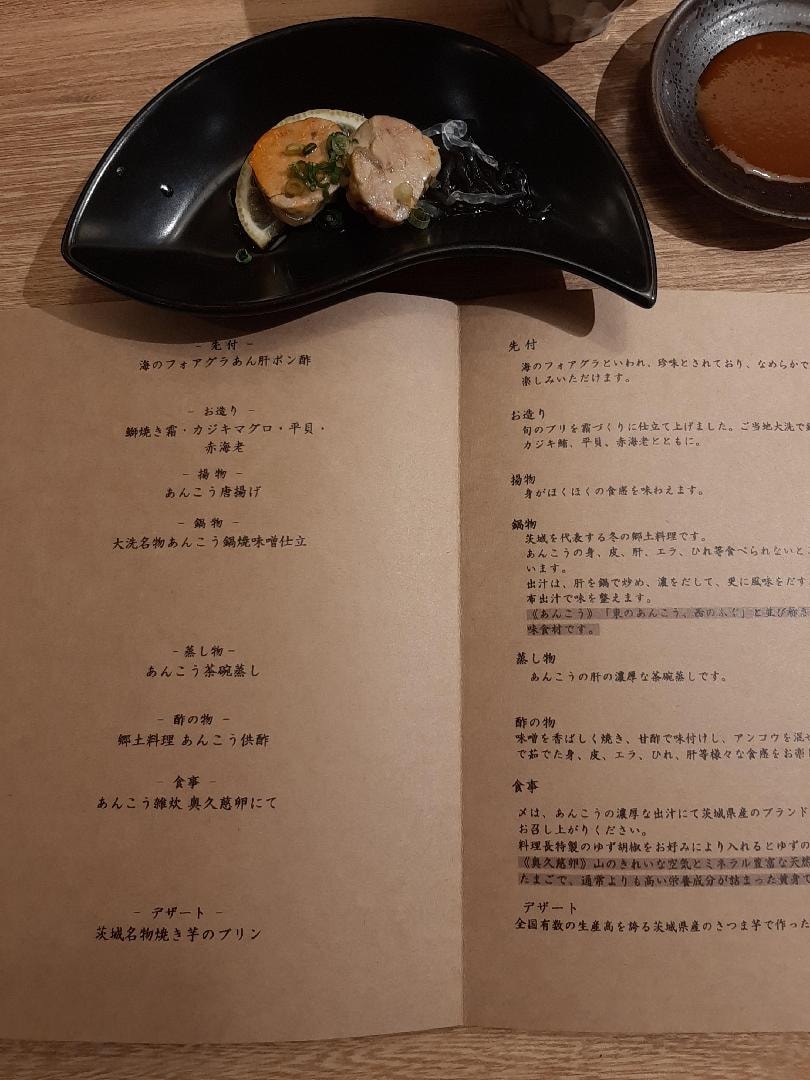 － 先 付 －
海のフォアグラあん肝ポン酢
－ お造り －
鰤焼き霜・カジキマグロ・平貝・
赤海老
－ 揚 物 －
あんこう唐揚げ
－ 鍋 物 －
大洗名物あんこう鍋焼味噌仕立
－蒸し物－
あんこう茶碗蒸し
－ 酢の物 －
郷土料理 あんこう供酢
－ 食事 －
あんこう雑炊 奥久慈卵にて
－ デザート －
茨城名物焼き芋のプリン
先 付
海のフォアグラといわれ、珍味とされており、なめらかで
楽しみいただけます。
お造り
旬のブリを霜づくりに仕立て上げました。ご当地大洗で
カジキ鮪、平貝、赤海老とともに。
揚物
身がほくほくの食感を味わえます。
鍋物
茨城を代表する冬の郷土料理です。
あんこうの身、皮、肝、エラ、ひれ等食べられないと
います。
出汁は、肝を鍋で炒め、濃をだして、更に風味をだす
布出汁で味を整えます。
《あんこう》「東のあんこう、西のふぐ」と並び称
味食材です。
蒸し物
あんこうの肝の濃厚な茶碗蒸しです。
酢の物
味噌を香ばしく焼き、甘酢で味付けし、アンコウを混
で茹でた身、皮、エラ、ひれ、肝等様々な食感をお楽
食事
〆は、あんこうの濃厚な出汁にて茨城県産のブランド
お召し上がりください。
料理長特製のゆず胡椒をお好みにより入れるとゆずの
《奥久慈卵》山のきれいな空気とミネラル豊富な天然
たまごで、通常よりも高い栄養成分が詰まった黄身で
デザート
全国有数の生産高を誇る茨城県産のさつま芋で作った